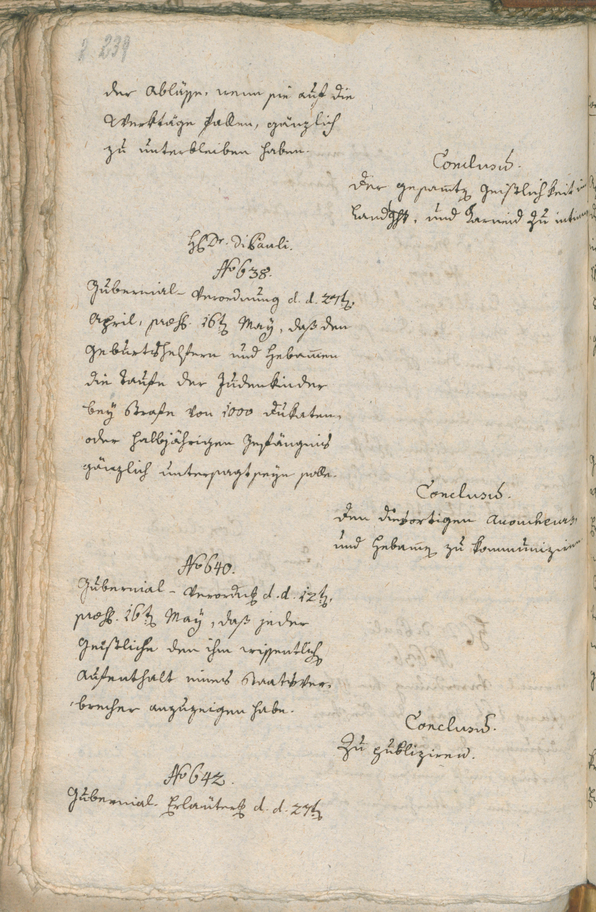 239
der Abläße, wenn sie auf die
Werktäge fallen, gänzlich
zu unterbleiben haben.
Conclusū.
der gesamte Geistlichkeit in
Landght, und Karneid zu intim
H. Dr. Di Pauli.
No 638.
Gubernial-Verordnung d. d. 27t
April, praes. 16t May, daß den
Geburtshelfern und Hebamen
die Taufe der Judenkinder
bey Strafe von 1000 Dukaten,
oder halbjährigen Gefängnis
gänzlich untersagt seyn solle.
Conclusū.
den dießortigen Accoucheurs
und Hebamen zu kommunizieren
No 640.
Gubernial-Verordng d. d. 12t,
praes. 16t May, daß jeder
Geistliche den ihm wissentlich
Aufenthalt eines Staatsver-
brecher anzuzeigen habe.
Conclusū.
Zu publiziren.
No 642.
Gubernial-Erläuterg d. d. 27t